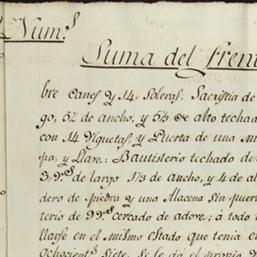 Num.s
Suma del fren
bre Canes y 14 Soleras: Sacristia de
go, 5½ de ancho, y 5½ de alto techad
con 14 Viguetas, y Puerta de una m
pa, y Llave: Bautisterio techado de
3 v.s de largo 1⅓ de ancho, y 4 de al
dero de piedra y una Alacena sin puert
terio de 99 v.s cercado de adove; á todo
llarse en el mismo estado que tenia e
ochocient.s Siete, se le dá el propio v